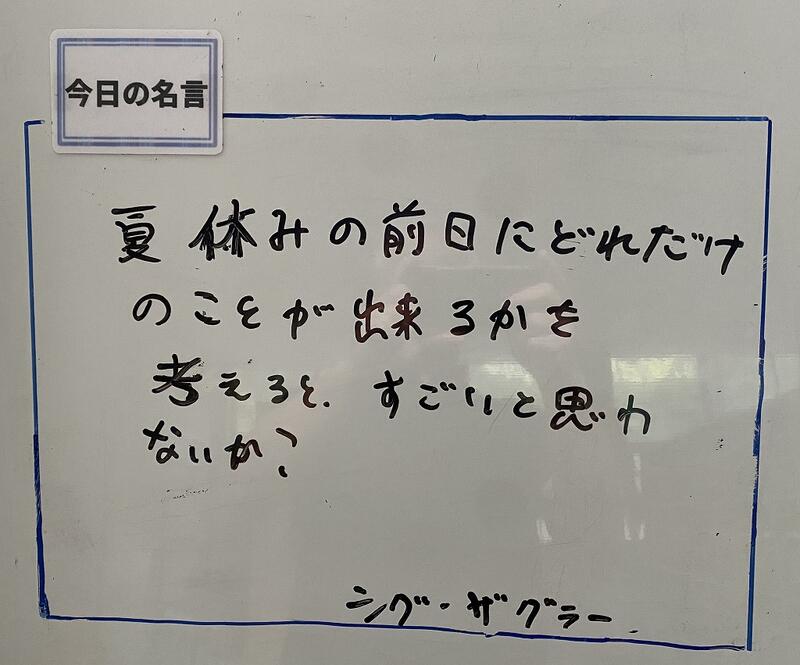 今日の名言
夏休みの前日にどれだけ
のことが出来るかを
考えると、すごいと思わ
ないか?
シグ・ザグラー